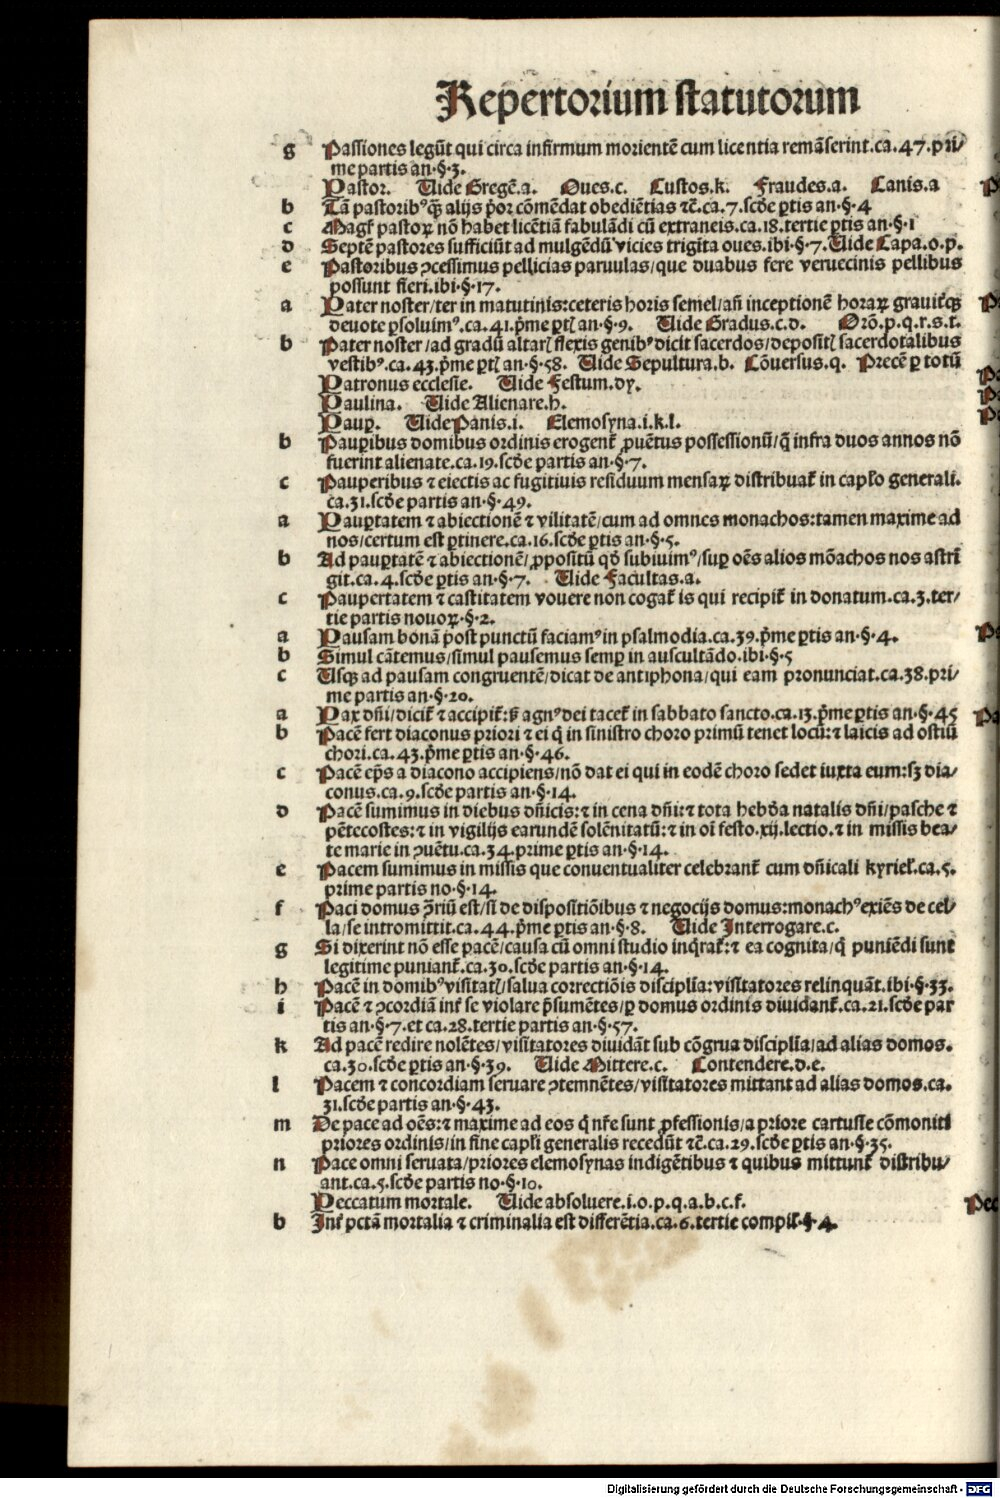 Repertorium statutorum
g Passiones legūt qui circa infirmum morientē cum licentia remāserint.ca.47.pri/
me partis an.§.3.
Pastor. Vide Gregē.a. Oues.c. Custos.k. Fraudes.a. Canis.a
b Tā pastoribꝰ qꝫ alijs p̄or cōmēdat obediētias ⁊c̄.ca.7.scd̄e ꝑtis an.§.4
c Magr̄ pastoꝝ nō habet licētiā fabulādi cū extraneis.ca.18.tertie ꝑtis an.§.1
d Septē pastores sufficiūt ad mulgēdū vicies trigīta oues.ibi.§.7. Vide Capa.o.p.
e Pastoribus ꝯcessimus pellicias paruulas/que duabus fere veruecinis pellibus
possunt fieri.ibi.§.17.
a Pater noster/ter in matutinis:ceteris horis semel/añ inceptionē horaꝝ grauit̄qꝫ
deuote ꝑsoluimꝰ.ca.41.p̄me ꝑtꝭ an.§.9. Vide Gradus.c.d. Orō.p.q.r.s.t.
b Pater noster/ad gradū altarꝭ flexis genibꝰ dicit sacerdos/depositꝭ sacerdotalibus
vestibꝰ.ca.43.p̄me ꝑtꝭ an.§.58. Vide Sepultura.b. Cōuersus.q. Precē ꝑ totū
Patronus ecclesie. Vide Festum.dy.
Paulina. Vide Alienare.h.
Pauꝑ. Vide Panis.i. Elemosyna.i.k.l.
b Pauꝑibus domibus ordinis erogent̄ ꝓuētus possessionū/q̄ infra duos annos nō
fuerint alienate.ca.19.scd̄e partis an.§.7.
c Pauperibus ⁊ eiectis ac fugitiuis residuum mensaꝝ distribuat̄ in capl̄o generali.
ca.31.scd̄e partis an.§.49.
a Pauꝑtatem ⁊ abiectionē ⁊ vilitatē/cum ad omnes monachos:tamen maxime ad
nos/certum est ꝑtinere.ca.16.scd̄e ꝑtis an.§.5.
b Ad pauꝑtatē ⁊ abiectionē/ꝓpositū qd̄ subiuimꝰ/suꝑ oēs alios mōachos nos astrī
git.ca.4.scd̄e ꝑtis an.§.7. Vide Facultas.a.
c Paupertatem ⁊ castitatem vouere non cogat̄ is qui recipit̄ in donatum.ca.3.ter/
tie partis nouoꝝ.§.2.
a Pausam bonā post punctū faciamꝰ in psalmodia.ca.39.p̄me ꝑtis an.§.4.
b Simul cātemus/simul pausemus semꝑ in auscultādo.ibi.§.5
c Usqꝫ ad pausam congruentē/dicat̄ de antiphona/qui eam pronunciat.ca.38.pri/
me partis an.§.20.
a Pax dn̄i/dicit̄ ⁊ accipit̄:sꝫ agnꝰ dei tacet̄ in sabbato sancto.ca.13.p̄me ꝑtis an.§.45
b Pacē fert diaconus priori ⁊ ei q̄ in sinistro choro primū tenet locū:⁊ laicis ad ostiū
chori.ca.43.p̄me ꝑtis an.§.46.
c Pacē ep̄s a diacono accipiens/nō dat ei qui in eodē choro sedet iuxta eum:sꝫ dia/
conus.ca.9.scd̄e partis an.§.14.
d Pacē sumimus in diebus dn̄icis:⁊ in cena dn̄i:⁊ tota hebd̄a natalis dn̄i/pasche ⁊
pētecostes:⁊ in vigilijs earundē solēnitatū:⁊ in oī festo.xij.lectio.⁊ in missis bea/
te marie in ꝯuētu.ca.34.prime ꝑtis an.§.14.
e Pacem sumimus in missis que conuentualiter celebrant̄ cum dn̄icali kyriel̄.ca.5.
prime partis no.§.14.
f Paci domus ꝯ̄riū est/si de dispositiōibus ⁊ negocijs domus:monachꝰ exiēs de cel/
la/se intromittit.ca.44.p̄me ꝑtis an.§.8. Vide Interrogare.c.
g Si dixerint nō esse pacē/causa cū omni studio inq̄rat̄:⁊ ea cognita/q̄ puniēdi sunt
legitime puniant̄.ca.30.scd̄e partis an.§.14.
h Pacē in domibꝰ visitatꝭ/salua correctiōis disciplīa:visitatores relinquāt.ibi.§.33.
i Pacē ⁊ ꝯcordiā int̄ se violare p̄sumētes/ꝑ domus ordinis diuidant̄.ca.21.scd̄e par
tis an.§.7.et ca.28.tertie partis an.§.57.
k Ad pacē redire nolētes/visitatores diuidāt sub cōgrua disciplīa/ad alias domos.
ca.30.scd̄e ꝑtis an.§.39. Vide Mittere.c. Contendere.d.e.
l Pacem ⁊ concordiam seruare ꝯtemnētes/visitatores mittant ad alias domos.ca.
31.scd̄e partis an.§.43.
m De pace ad oēs:⁊ maxime ad eos q̄ nr̄e sunt ꝓfessionis/a priore cartusie cōmoniti
priores ordinis/in fine capl̄i generalis recedūt ⁊c̄.ca.29.scd̄e ꝑtis an.§.35.
n Pace omni seruata/priores elemosynas indigētibus ⁊ quibus mittunt̄ distribu/
ant.ca.5.scd̄e partis no.§.10.
Peccatum mortale. Vide absoluere.i.o.p.q.a.b.c.f.
b Int̄ pctā mortalia ⁊ criminalia est differētia.ca.6.tertie compil̄.§.4.
Digitalisierung gefördert durch die Deutsche Forschungsgemeinschaft - DFG